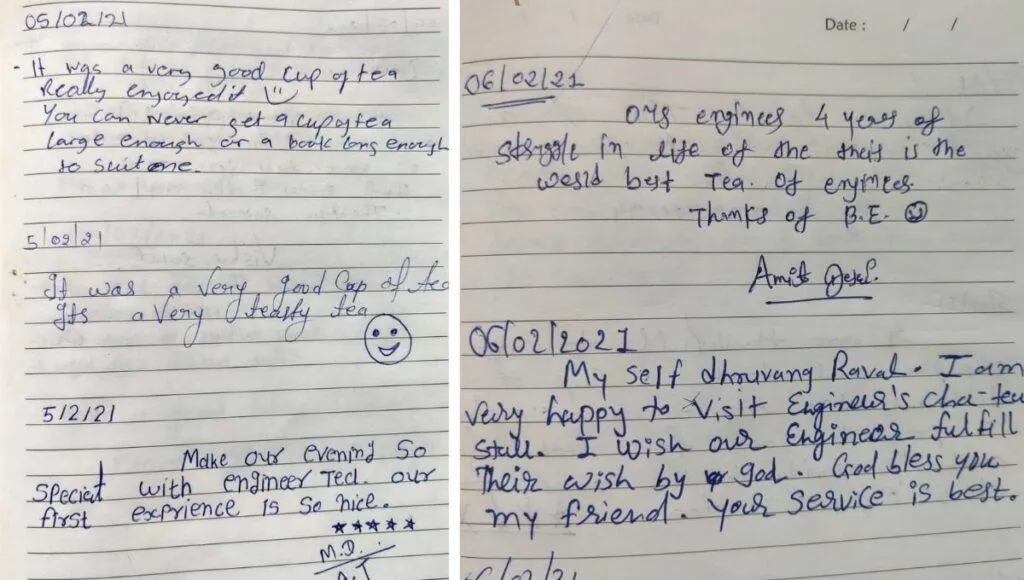 05/02/21
- It was a very good cup of tea
Really enjoyed it
You can Never get a cup of tea
large enough or a book long enough
to suit one.
5/02/21
It was a very good Cap of tea
Its a very teasty tea
5/2/21
Make our evening So
special with engineer Tea. our
first exprience is so nice.
M.D.
A.J
Date : / /
06/02/21
our engineer 4 years of
struggle in life of the their is the
world best Tea. Of engineer.
Thanks of B.E.
Amit
06/02/2021
My self dhruvang Raval. I am
very happy to visit Engineer's cha-tea
stall. I wish our Engineer fulfill
Their wish by god. God bless you
my friend. your service is best.